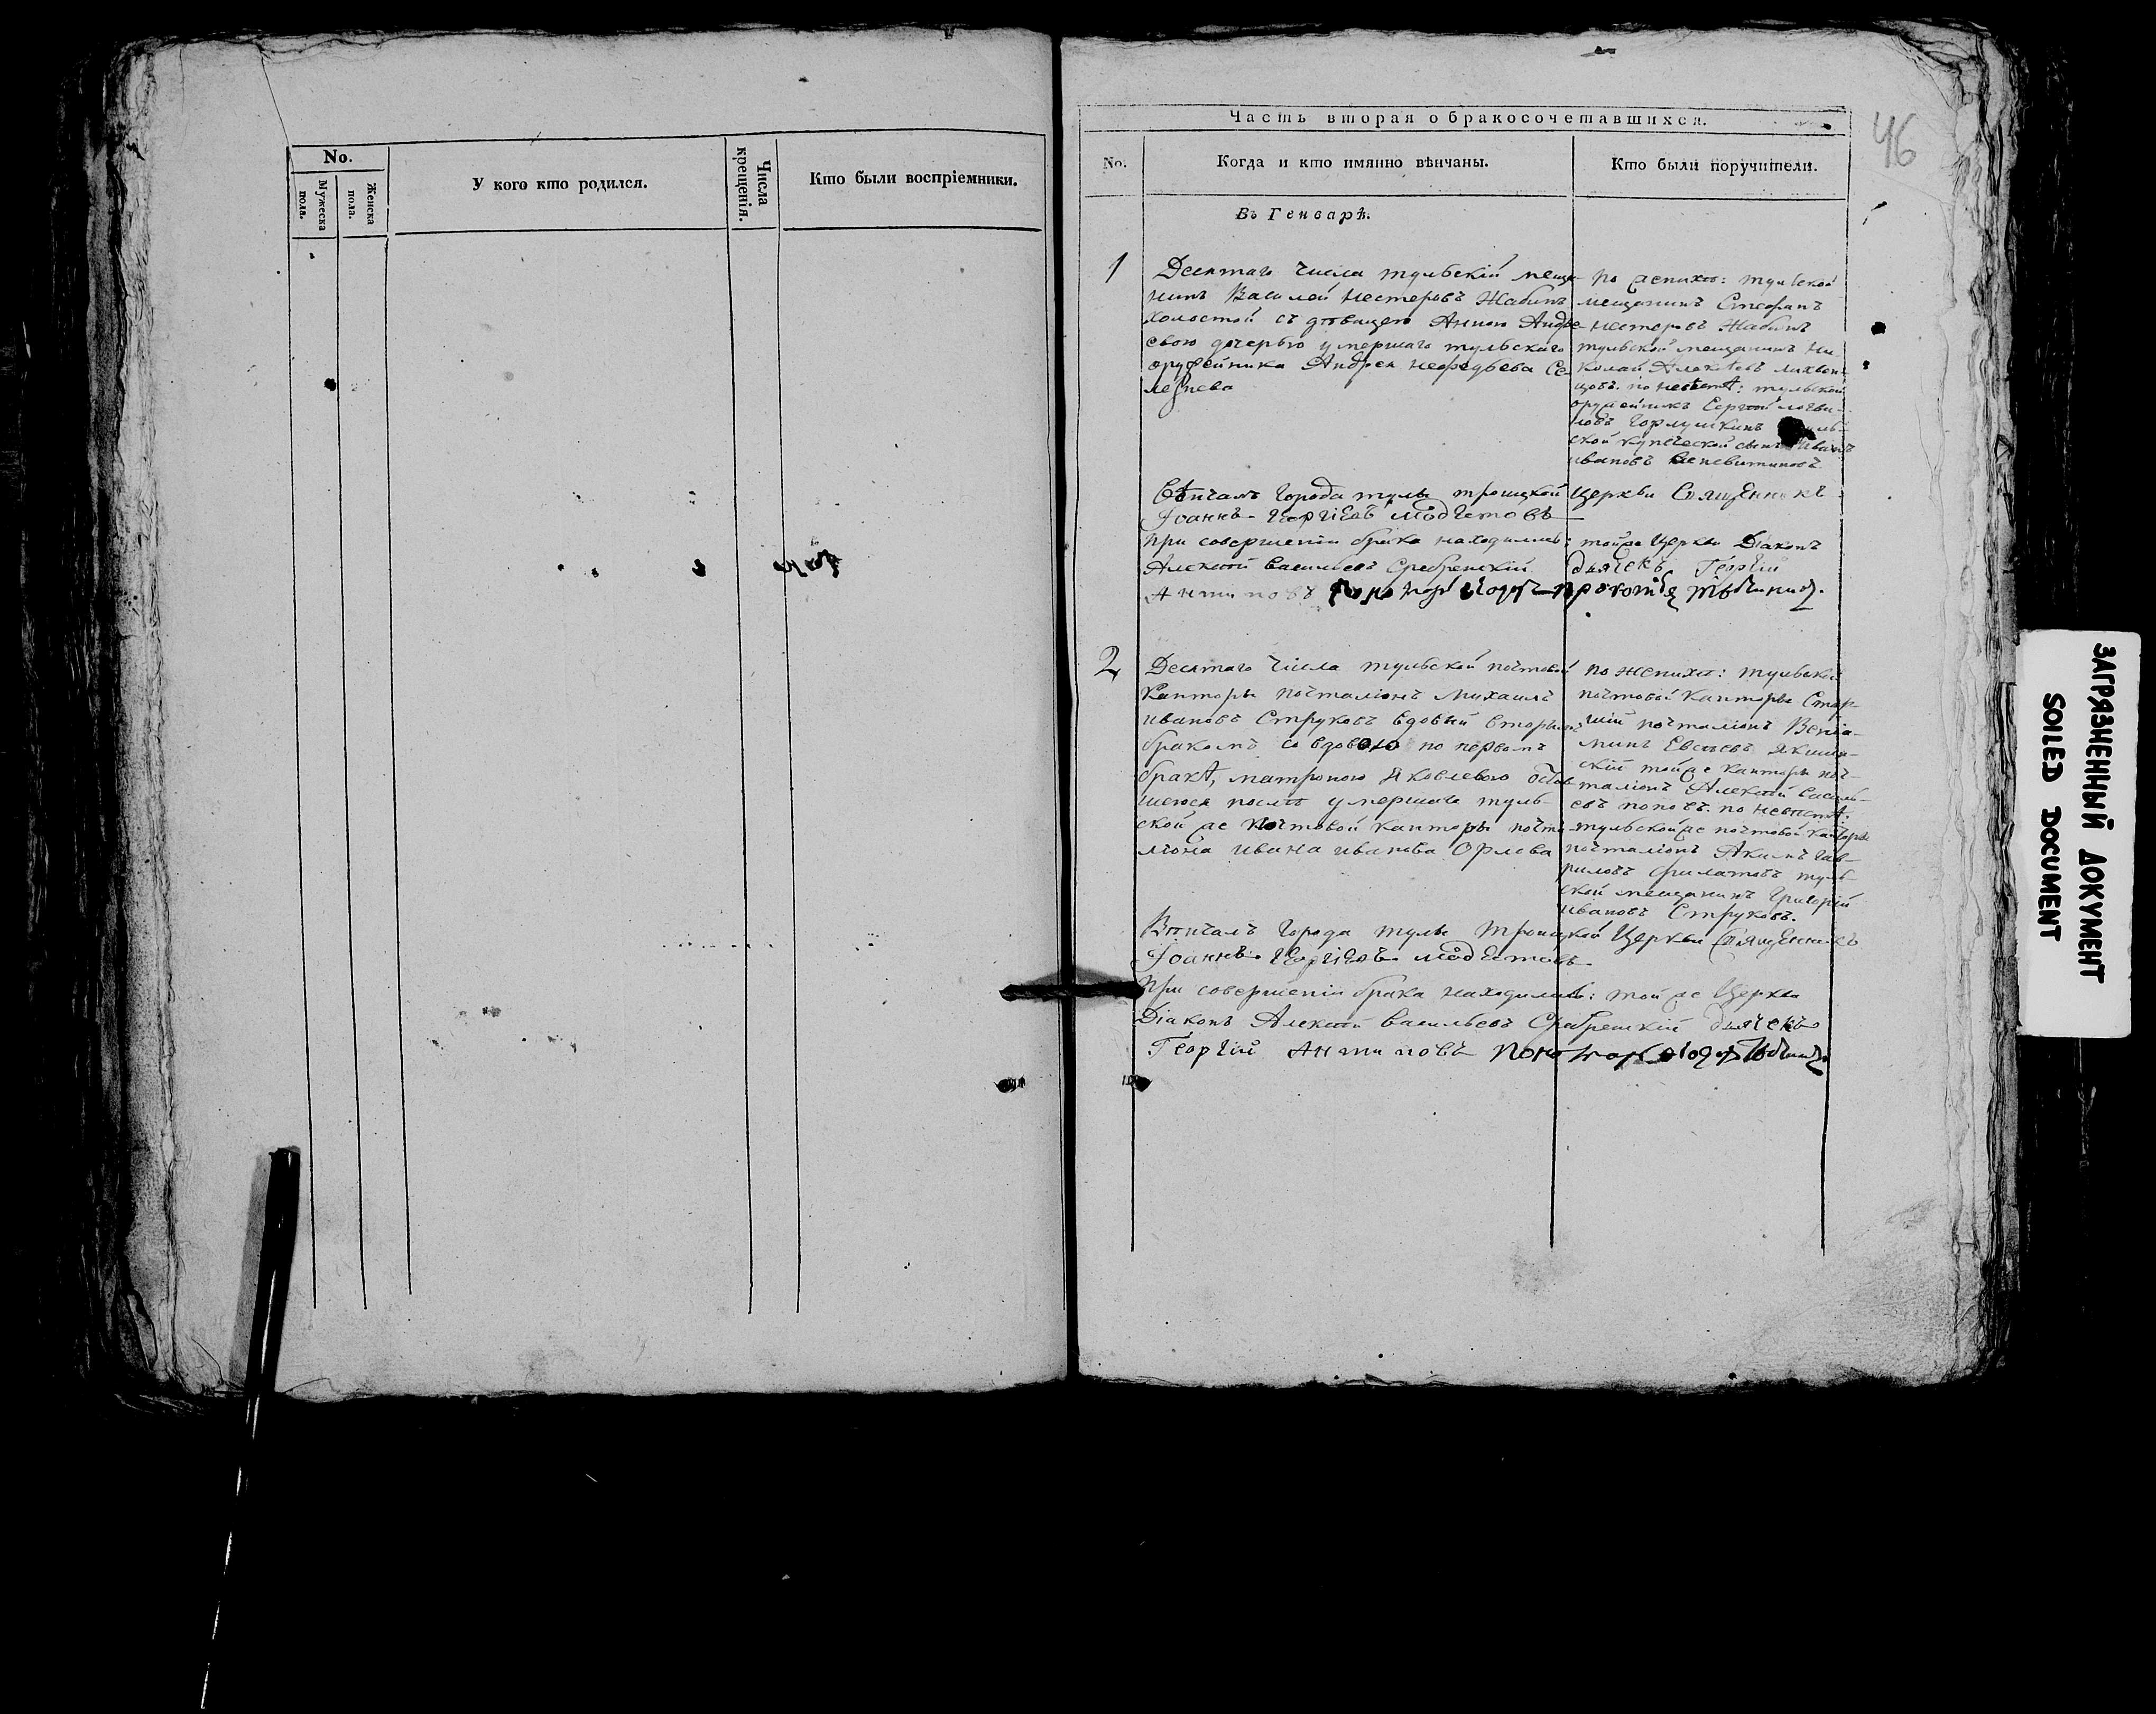 No.
Мужеска пола.
Женска пола.
У кого кто родился.
Числа крещенія.
Кто были воспріемники.
46
Часть вторая о бракосочетавшихся.
No.
Когда и кто имянно вѣнчаны.
Кто были поручители.
Въ Генварѣ.
1
Десятаго числа тульскій меща-
нинъ Василей Нестеровъ Жабинъ
холостой съ дѣвицею Анною Андре-
евою дочерью умершаго тульскаго
оружейника Андрея Нефедьева Се-
лезнева
по женихѣ: тульской
мещанинъ Стефанъ
Нестеровъ Жабинъ
тульской мещанинъ Ни-
колай Алексѣевъ Лихвен-
цовъ. по невѣстѣ: тульской
оружейникъ Сергѣй
ской купеческой сынъ Иванъ
ивановъ
Вѣнчалъ города тулы троицкой Церкви Священникъ
Іоаннъ Георгіевъ Модестовъ
при совершеніи брака находились: тойже Церкви Діаконъ
Алексѣй Васильевъ Сребренскій дьячекъ Георгій
Антиповъ
2
Десятаго числа тульской почтовой
Канторы почталіонъ Михаилъ
ивановъ Струковъ вдовый вторымъ
бракомъ со вдовою по первомъ
бракѣ, матроною Яковлевою остав-
шеюся послѣ умершаго туль-
ской же почтовой канторы почта-
ліона ивана иванова Орлова
по женихѣ: тульской
почтовой канторы Стар-
шій почталіонъ Веніа-
минъ Евсѣевъ
скій той же канторы поч-
таліонъ Алексѣй василь-
евъ поповъ. по невѣстѣ:
тульской же почтовой канторы
почталіонъ Акимъ Гав-
риловъ филатовъ туль-
ской мещанинъ Григорій
ивановъ Струковъ.
Вѣнчалъ города тулы Троицкой Церкви Священникъ
Іоаннъ Георгіевъ Модестовъ
При совершеніи брака находились: той же Церкви
Діаконъ Алексѣй Васильевъ Сребренскій дьячекъ
Георгій Антиповъ
ЗАГРЯЗНЕННЫЙ ДОКУМЕНТ
SOILED DOCUMENT